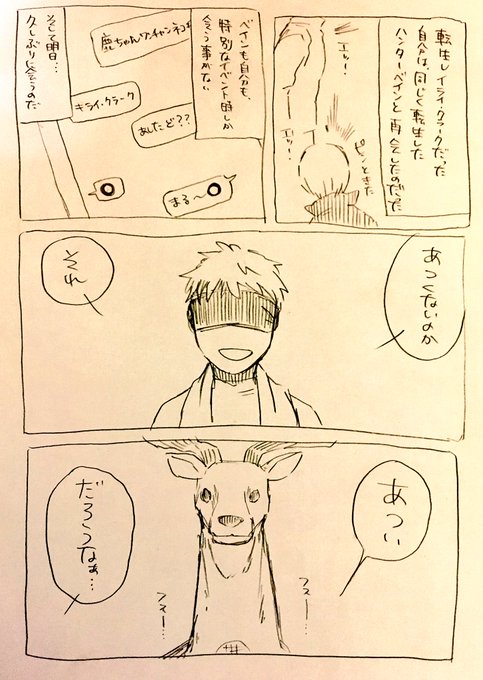 転生しイライ・クラークだった
自分は、同じく転生した
ハンターベインと再会したのだった
エッ…!
エッ…!
ピンときた
ベインも自分も、
特別なイベント時しか
会う事がない
鹿ちゃんワ.チャンネコキ
キライ.クラーク
あしたど??
まる〜
そして明日…
久しぶりに会うのだ
あつくないのか
それ
あつい
だろうなぁ…
フスー…
フスー…